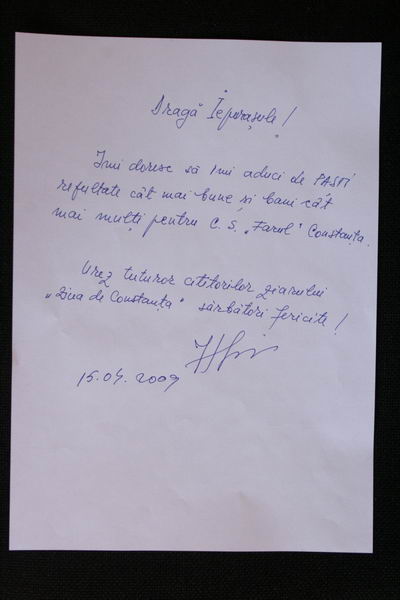 Dragă Iepurașule!
Îmi doresc să îmi aduci de PAȘTI
rezultate cât mai bune și bani cât
mai mulți pentru C.S. „Farul" Constanța.
Urez tuturor cititorilor ziarului
„Ziua de Constanța" sărbători fericite!
15.04.2009